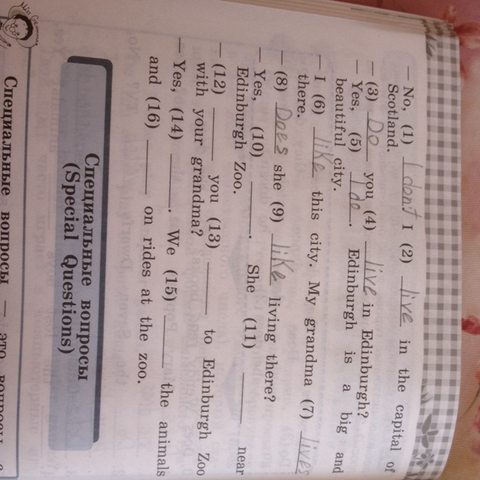 — No, (1) I don't I (2) live in the capital of
Scotland.
— (3) Do you (4) live in Edinburgh?
— Yes, (5) I do. Edinburgh is a big and
beautiful city.
— I (6) like this city. My grandma (7) lives
there.
— (8) Does she (9) like living there?
— Yes, (10) ______. She (11) ______ near
Edinburgh Zoo.
— (12) ______ you (13) ______ to Edinburgh Zoo
with your grandma?
— Yes, (14) ______. We (15) ______ the animals
and (16) ______ on rides at the zoo.
Специальные вопросы
(Special Questions)
Специальные вопросы — это вопросы